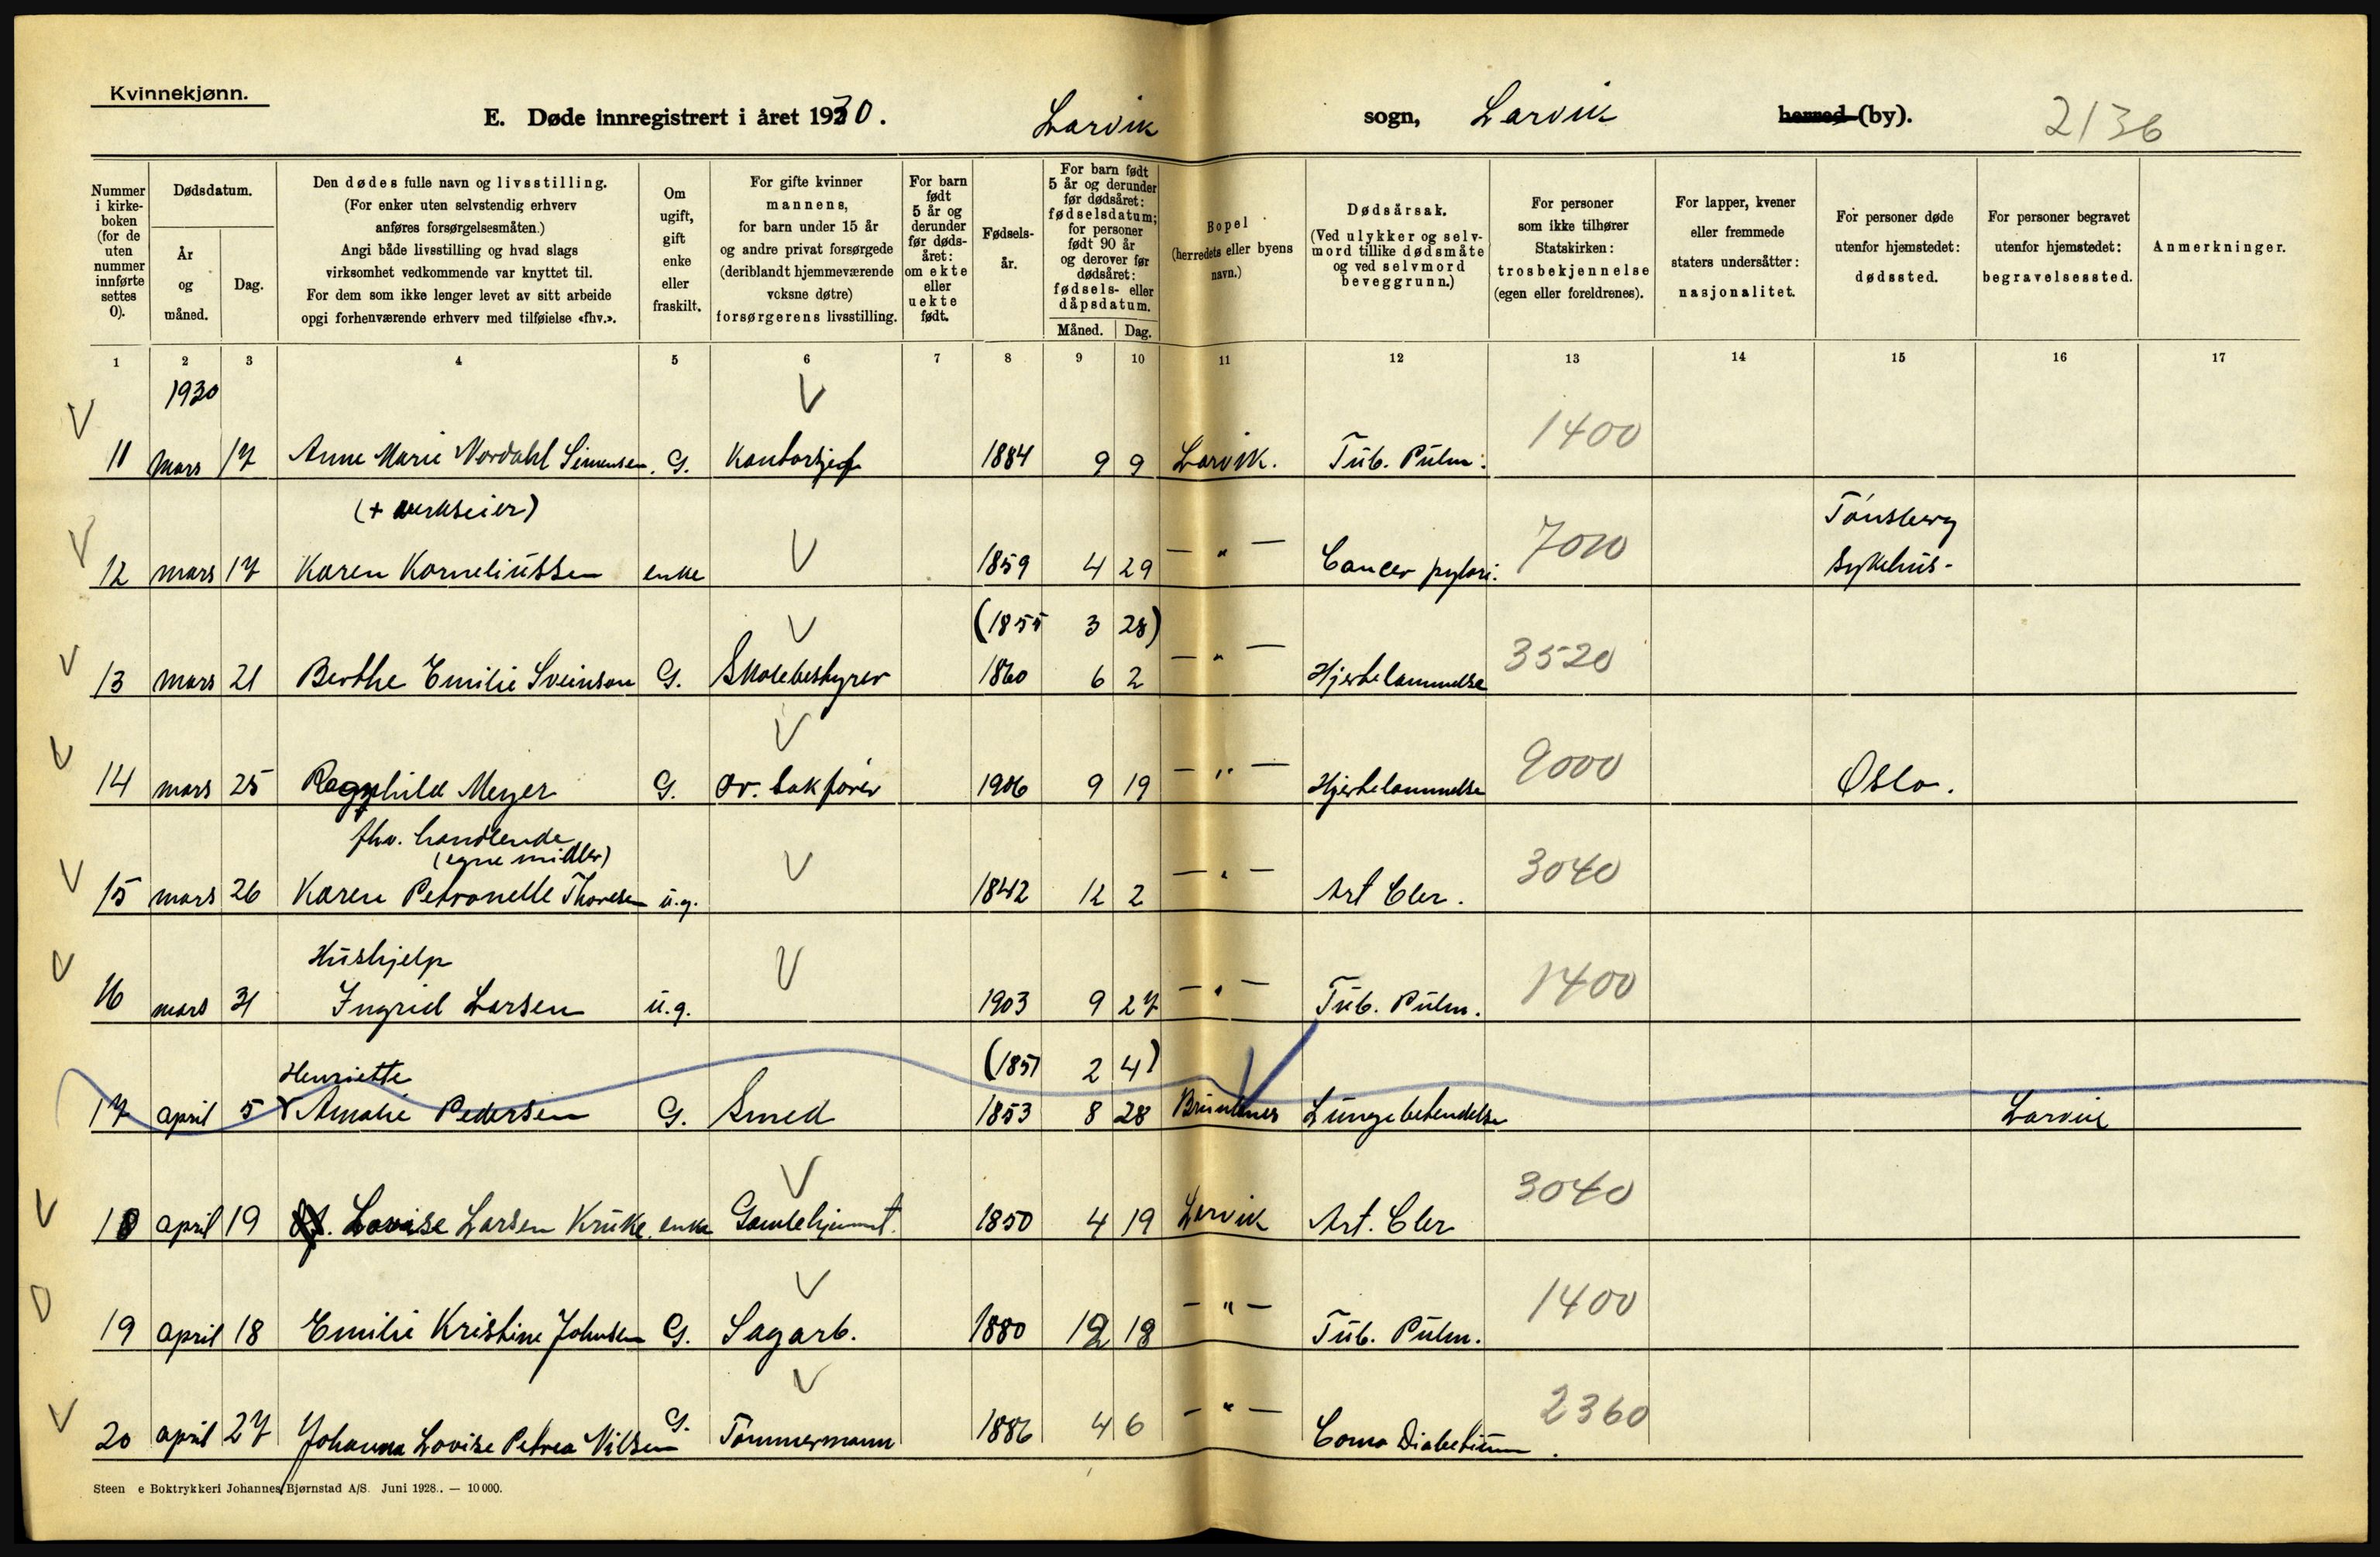 Kvinnekjønn.
E. Døde innregistrert i året 1930. Larvik sogn, Larvik herred (by). 2136
Nummer i kirke-boken (for de uten nummer innførte settes 0).
Dødsdatum.
År og måned.
Dag.
Den dødes fulle navn og livsstilling.
(For enker uten selvstendig erhverv
anføres forsørgelsesmåten.)
Angi både livsstilling og hvad slags
virksomhet vedkommende var knyttet til.
For dem som ikke lenger levet av sitt arbeide
opgi forhenværende erhverv med tilføielse «fhv.».
Om ugift, gift enke eller fraskilt.
For gifte kvinner
mannens,
for barn under 15 år
og andre privat forsørgede
(deriblandt hjemmeværende
voksne døtre)
forsørgerens livsstilling.
For barn født 5 år og derunder før døds-året: om ekte eller uekte født.
Fødsels-år.
For barn født
5 år og derunder
før dødsåret:
fødselsdatum;
for personer
født 90 år
og derover før
dødsåret:
fødsels- eller
dåpsdatum.
Måned. Dag.
Bopel
(herredets eller byens
navn.)
Dødsårsak.
(Ved ulykker og selv-
mord tillike dødsmåte
og ved selvmord
beveggrunn.)
For personer
som ikke tilhører
Statskirken:
trosbekjennelse
(egen eller foreldrenes).
For lapper, kvener
eller fremmede
staters undersåtter:
nasjonalitet.
For personer døde
utenfor hjemstedet:
dødssted.
For personer begravet
utenfor hjemstedet:
begravelsessted.
Anmerkninger.
1 2 3 4 5 6 7 8 9 10 11 12 13 14 15 16 17
1930
11 mars 17 Anne Marie Nordahl Simensen. G. Kontorsjef 1884 9 9 Larvik. Tub. Pulm. 1400
(+ verkseier) Tønsberg
12 mars 17 Karen Korneliussen enke 1859 4 29 — " — Cancer pylori. 7010 Sykehus-
(1855 3 28)
13 mars 21 Berthe Emilie Sveinson G. Skolebestyrer 1860 6 2 — " — Hjertelammelse 3520
14 mars 25 Ragnhild Meyer G. Or. sakfører 1906 9 19 — " — Hjertelammelse 9000 Oslo.
fhv. handlende
(egne midler)
15 mars 26 Karen Petronelle Thoresen u.g. 1842 12 2 — " — Art Cler. 3040
Hushjelp
16 mars 31 Ingrid Larsen u.g. 1903 9 27 — " — Tub. Pulm. 1400
Henriette (1851 2 4)
17 april 5 Amalie Pedersen G. Smed 1853 8 28 Brunlanes Lungebetendelse Larvik
18 april 19 Lovise Larsen Kruke. enke Gamlehjemmet. 1850 4 19 Larvik Art. Cler 3040
19 april 18 Emilie Kristine Johnsen G. Sagarb. 1880 12 18 — " — Tub. Pulm. 1400
20 april 27 Johanna Lovise Petrea Nilsen G. Tømmermann 1886 4 6 — " — Coma Diabeticum. 2360
Steen e Boktrykkeri Johannes Bjørnstad A/S. Juni 1928.. — 10 000.